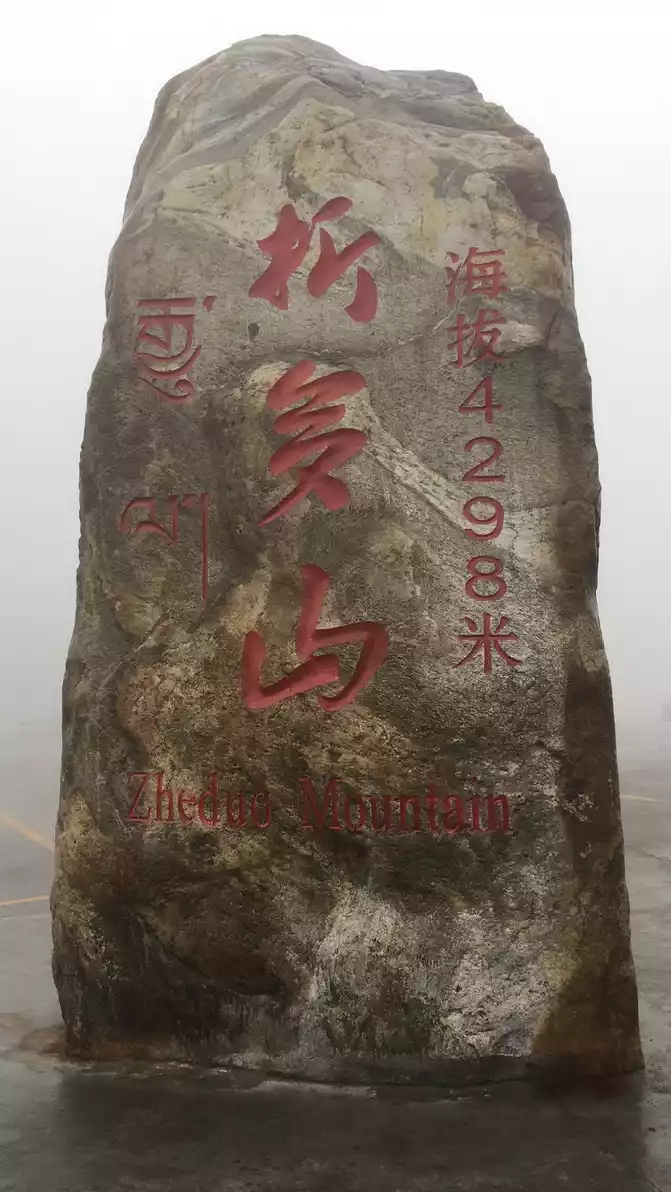 折多山
海拔4298米
ལ།
Zheduo Mountain